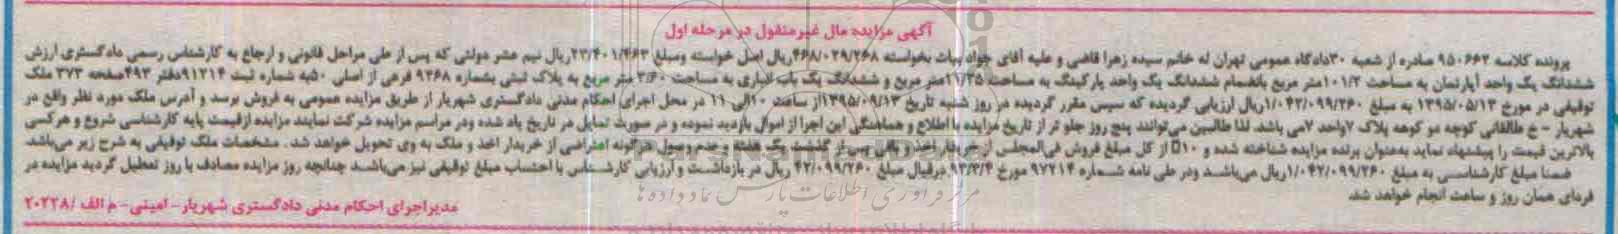 آگهی مزایده مال غیرمنقول در مرحله اول
پرونده کلاسه ۹۵۰۶۶۲ صادره از شعبه ۳۰دادگاه عمومی تهران له خانم سیده زهرا قاضی و علیه آقای جواد بیات بخواسته ۴۶۸/۰۲۹/۲۶۸ریال اصل خواسته ومبلغ ۲۳/۴۰۱/۴۶۳ریال نیم عشر دولتی که پس از طی مراحل قانونی و ارجاع به کارشناس رسمی دادگستری ارزش
ششدانگ یک واحد آپارتمان به مساحت ۱۰۱/۲متر مربع بانضمام ششدانگ یک واحد پارکینگ به مساحت ۱۱/۲۵متر مربع و ششدانگ یک باب انباری به مساحت ۳/۶۰ متر مربع به پلاک ثبتی بشماره ۹۳۶۸ فرعی از اصلی ۵۰به شماره ثبت ۹۱۲۱۴دفتر ۴۹۳صفحه ۳۷۳ ملک
توقیفی در مورخ ۱۳۹۵/۰۵/۱۳ به مبلغ ۱/۰۴۲/۰۹۹/۲۶۰ریال ارزیابی گردیده که سپس مقرر گردیده در روز شنبه تاریخ ۱۳۹۵/۰۹/۱۳از ساعت ۱۰الی ۱۱ در محل اجرای احکام مدنی دادگستری شهریار از طریق مزایده عمومی به فروش برسد و آدرس ملک مورد نظر واقع در
شهریار - خ طالقانی کوچه دو کوهه پلاک ۷واحد ۷می باشد. لذا طالبین می‌توانند پنج روز جلو تر از تاریخ مزایده با اطلاع و هماهنگی این اجرا از اموال بازدید نموده و در صورت تمایل در تاریخ یاد شده ودر مراسم مزایده شرکت نمایند مزایده ازقیمت پایه کارشناسی شروع و هرکسی
بالاترین قیمت را پیشنهاد نماید به‌عنوان برنده مزایده شناخته شده و ۱۰٪ از کل مبلغ فروش فی‌المجلس از خریدار اخذ و باقی پس از گذشت یک هفته و عدم وصول هرگونه اعتراضی از خریدار اخذ و ملک به وی تحویل خواهد شد. مشخصات ملک توقیفی به شرح زیر می‌باشد.
ضمنا مبلغ کارشناسی به مبلغ ۱/۰۴۲/۰۹۹/۲۶۰ریال می‌باشد ودر طی نامه شماره ۹۷۲۱۴ مورخ ۹۳/۳/۴ درقبال مبلغ ۴۲/۰۹۹/۲۶۰ ریال در بازداشت و ارزیابی کارشناس با احتساب مبلغ توقیفی نیز می‌باشد چنانچه روز مزایده مصادف با روز تعطیل گردید مزایده در
فردای همان روز و ساعت انجام خواهد شد.
مدیراجرای احکام مدنی دادگستری شهریار- امینی- م الف /۲۰۲۲۸
مرکز فرآوری اطلاعات پارس نماد داده ها